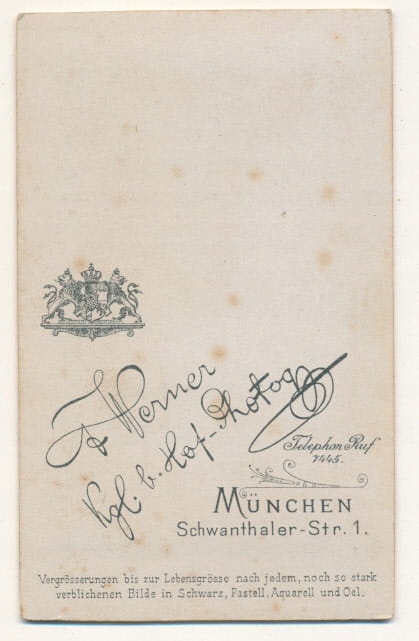 Fr Werner
Kgl. b. Hof-Photogr.
Telephon Ruf
7445.
MÜNCHEN
Schwanthaler-Str. 1.
Vergrösserungen bis zur Lebensgrösse nach jedem, noch so stark
verblichenen Bilde in Schwarz, Pastell, Aquarell und Oel.